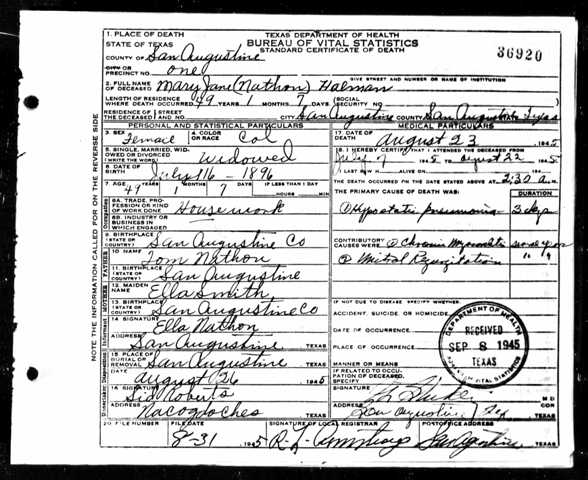 1. PLACE OF DEATH
STATE OF TEXAS
TEXAS DEPARTMENT OF HEALTH
BUREAU OF VITAL STATISTICS
STANDARD CERTIFICATE OF DEATH
36920
COUNTY OF San Augustine
CITY OR PRECINCT NO. one
GIVE STREET AND NUMBER OR NAME OF INSTITUTION
2. FULL NAME OF DECEASED Mary Jane (Nathon) Holman
LENGTH OF RESIDENCE WHERE DEATH OCCURRED 49 YEARS 1 MONTHS 7 DAYS SOCIAL SECURITY NO.
RESIDENCE OF THE DECEASED STREET NO. CITY San Augustine COUNTY San Augustine Texas
PERSONAL AND STATISTICAL PARTICULARS
MEDICAL PARTICULARS
3. SEX Female 4. COLOR OR RACE Col
17. DATE OF DEATH August 23 1945
5. SINGLE, MARRIED, WIDOWED OR DIVORCED (WRITE THE WORD) Widowed
18. I HEREBY CERTIFY THAT I ATTENDED THE DECEASED FROM
July 7 1945 TO August 22 1945
6. DATE OF BIRTH July 16 - 1896
I LAST SAW H ALIVE ON
THE DEATH OCCURRED ON THE DATE STATED ABOVE AT 2:30 a M.
7. AGE 49 YEARS 1 MONTHS 7 DAYS IF LESS THAN 1 DAY HOURS MIN
THE PRIMARY CAUSE OF DEATH WAS: DURATION
8A. TRADE, PROFESSION OR KIND OF WORK DONE House work
Hypostatic pneumonia 3 days
8B. INDUSTRY OR BUSINESS IN WHICH ENGAGED
9. BIRTHPLACE (STATE OR COUNTY) San Augustine Co
CONTRIBUTORY CAUSES WERE: Chronic Myocarditis several years
Mitral Regurgitation " "
FATHER
10. NAME Tom Nathon
11. BIRTHPLACE (STATE OR COUNTY) San Augustine
MOTHER
12. MAIDEN NAME Ella Smith
13. BIRTHPLACE (STATE OR COUNTY) San Augustine Co
IF NOT DUE TO DISEASE SPECIFY WHETHER:
ACCIDENT, SUICIDE OR HOMICIDE
14. SIGNATURE Ella Nathon
DATE OF OCCURRENCE
ADDRESS San Augustine TEXAS
PLACE OF OCCURRENCE
15. PLACE OF BURIAL OR REMOVAL San Augustine TEXAS
MANNER OR MEANS
DATE August 26 1945
IF RELATED TO OCCUPATION OF DECEASED, SPECIFY
16. SIGNATURE Sid Roberts
SIGNATURE M D
ADDRESS Nacogdoches TEXAS
ADDRESS San Augustine, Tex TEXAS
20. FILE NUMBER
FILE DATE 8-31 1945
SIGNATURE OF LOCAL REGISTRAR
POSTOFFICE ADDRESS San Augustine, TEXAS
DEPARTMENT OF HEALTH
RECEIVED
SEP 8 1945
TEXAS
BUREAU VITAL STATISTICS
NOTE THE INFORMATION CALLED FOR ON THE REVERSE SIDE